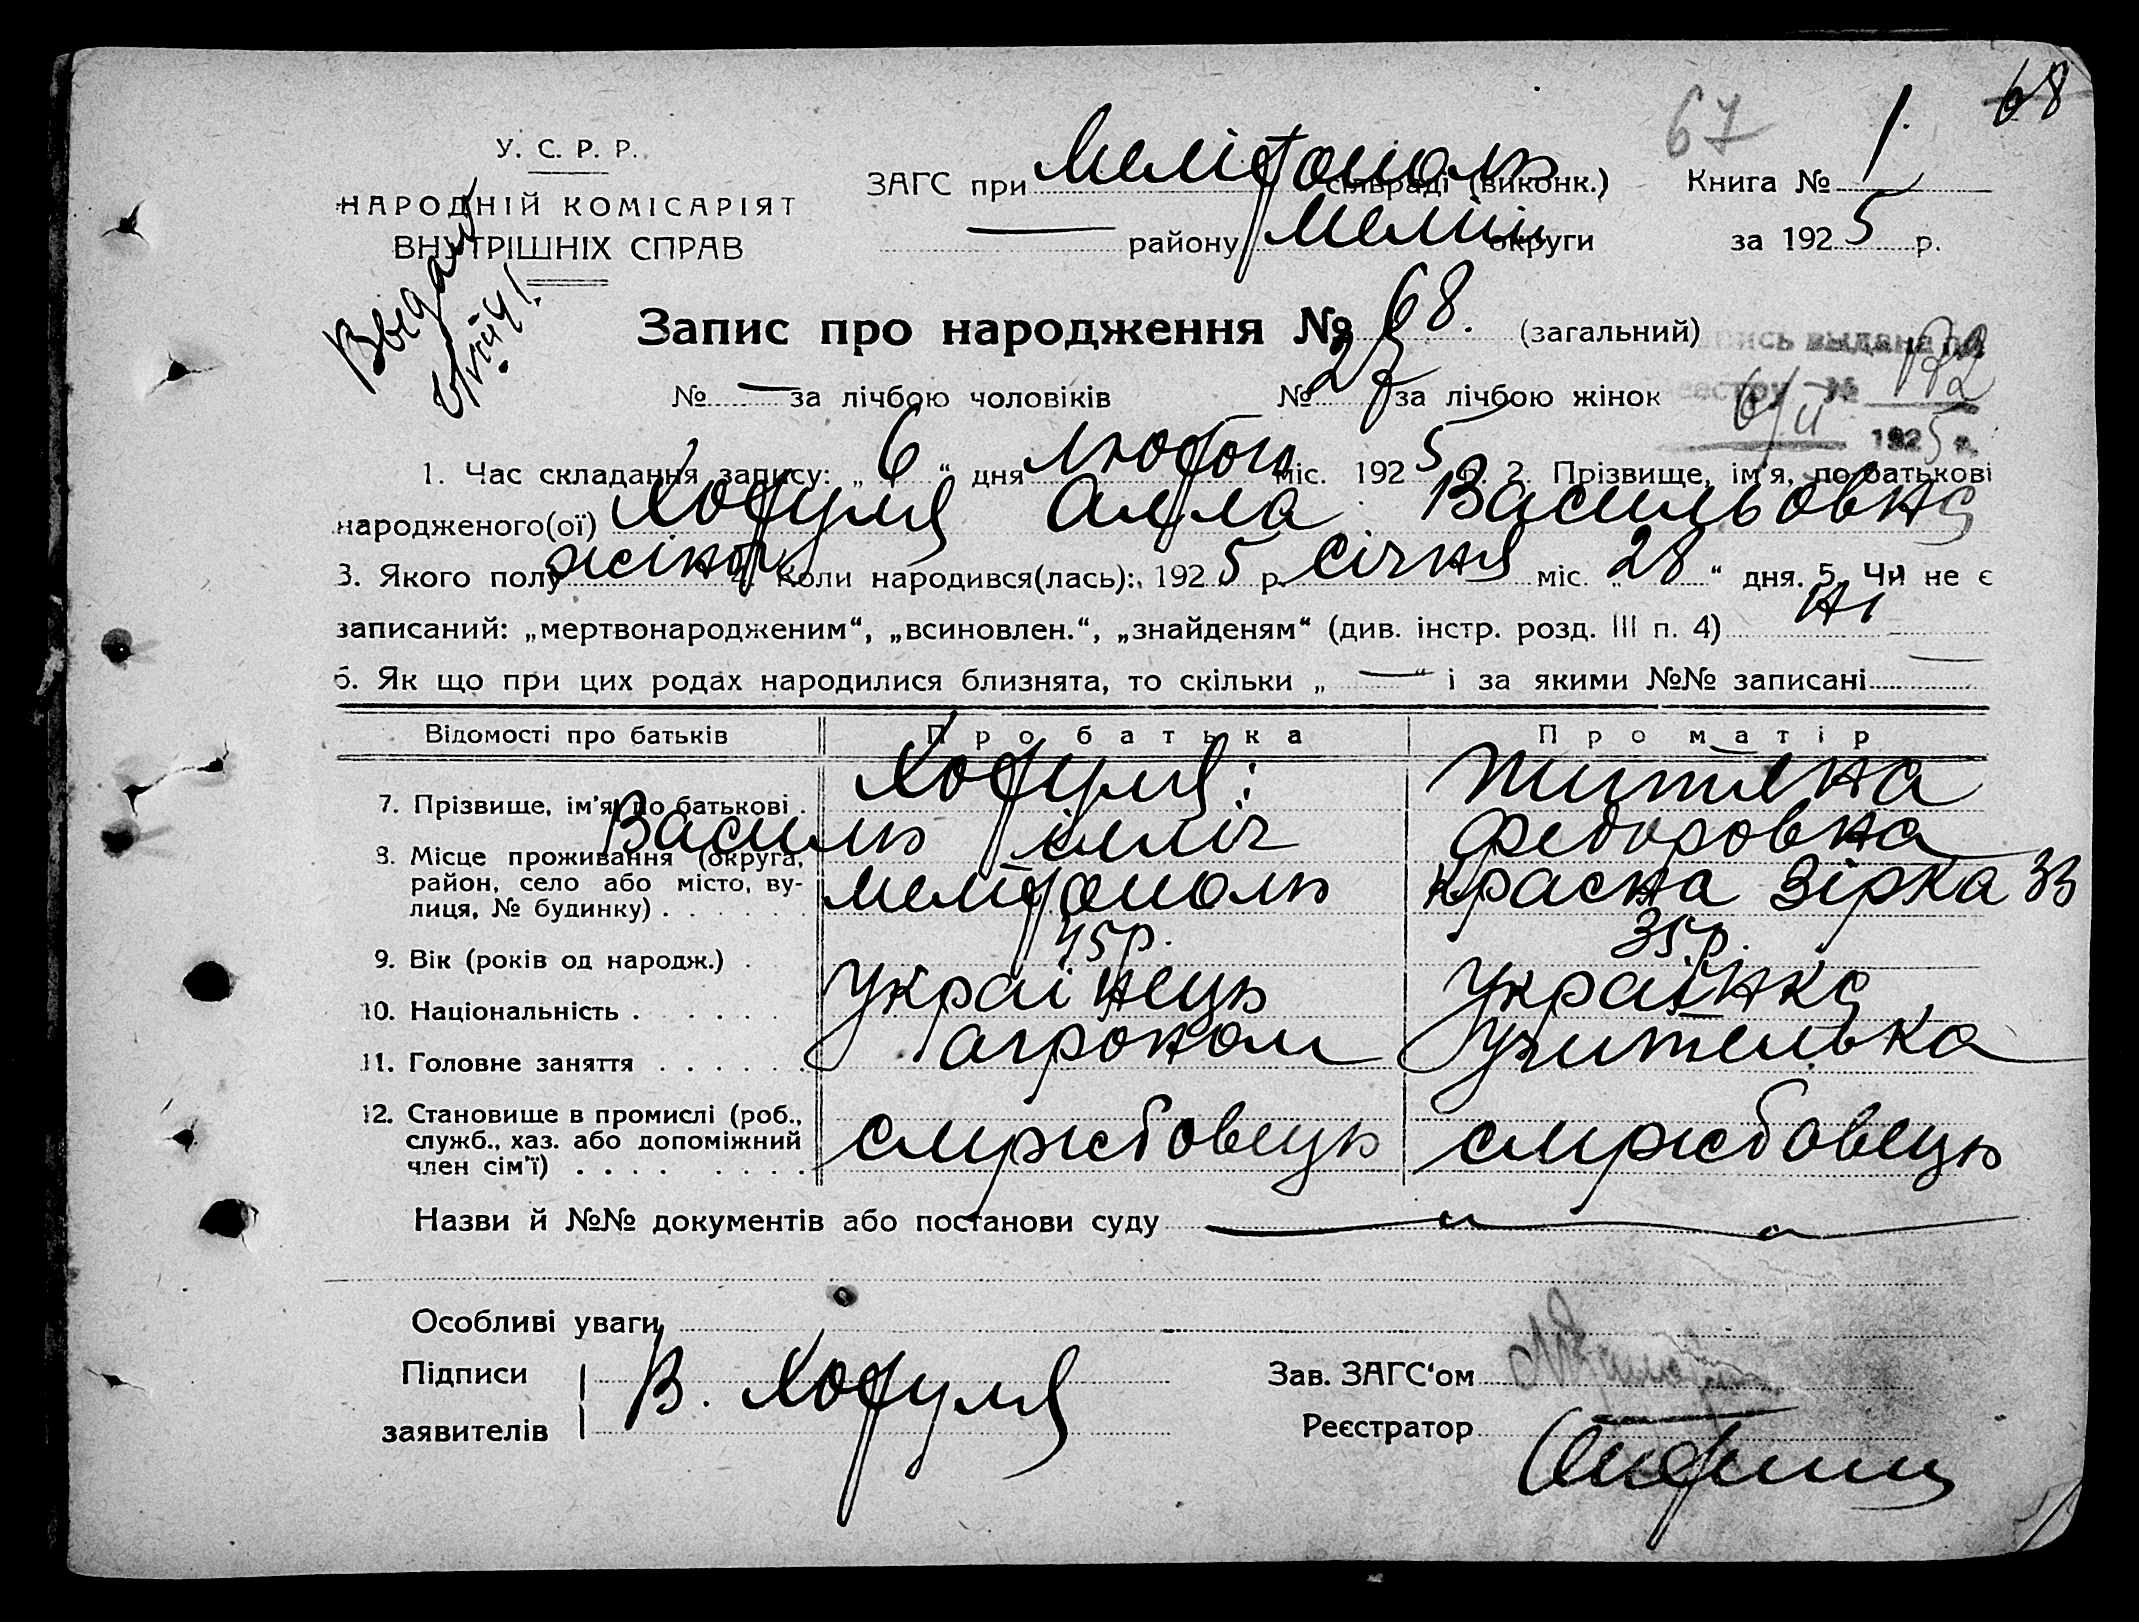 67 68
У. С. Р. Р.
НАРОДНІЙ КОМІСАРІЯТ
ВНУТРІШНІХ СПРАВ
ЗАГС при Мелітополь сільраді (виконк.) Книга № 1
— району Меліт округи за 1925 р.
Выдан
Запис про народження № 68. (загальний)
запись выдана по
реестру № 192
6/II 1925 г.
№ — за лічбою чоловіків № 27 за лічбою жінок
1. Час складання запису: „6“ дня лютого міс. 1925 р. 2. Прізвище, ім'я, по батькові
народженого(ої) Хотуля Алла Васильовна
3. Якого полу жіноч 4. Коли народився(лась): 1925 р. Січня міс. „28“ дня. 5. Чи не є
записаний: „мертвонародженим“, „всиновлен.“, „знайденям“ (див. інстр. розд. III п. 4) ні
6. Як що при цих родах народилися близнята, то скільки „—“ і за якими №№ записані —
Відомості про батьків Про батька Про матір
7. Прізвище, ім'я, по батькові . Хотуля: Василь Ілліч Титяна Федоровна
8. Місце проживання (округа,
район, село або місто, ву-
лиця, № будинку) . . . . . . Мелітополь Красна Зірка 33
9. Вік (років од народж.) . 45р. 35р.
10. Національність . . . . . . Українець Українка
11. Головне заняття . . . . . . агроном Учителька
12. Становище в промислі (роб.,
служб., хаз. або допоміжний
член сім'ї) . . . . . . . . службовець службовець
Назви й №№ документів або постанови суду —
Особливі уваги
Підписи В. Хотуля Зав. ЗАГС'ом
заявителів Реєстратор